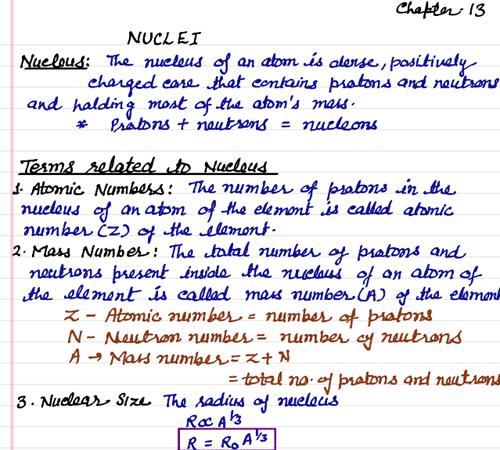 Chapter 13
NUCLEI
Nucleus: The nucleus of an atom is dense, positively
charged core that contains protons and neutrons
and holding most of the atom's mass.
* Protons + neutrons = nucleons
Terms related to Nucleus
1. Atomic Numbers: The number of protons in the
nucleus of an atom of the element is called atomic
number (Z) of the element.
2. Mass Number: The total number of protons and
neutrons present inside the nucleus of an atom of
the element is called mass number (A) of the element
Z - Atomic number = number of protons
N - Neutron number = number of neutrons
A → Mass number = Z + N
= total no. of protons and neutrons
3. Nuclear Size The radius of nucleus
R ∝ A^1/3
R = R₀ A^1/3